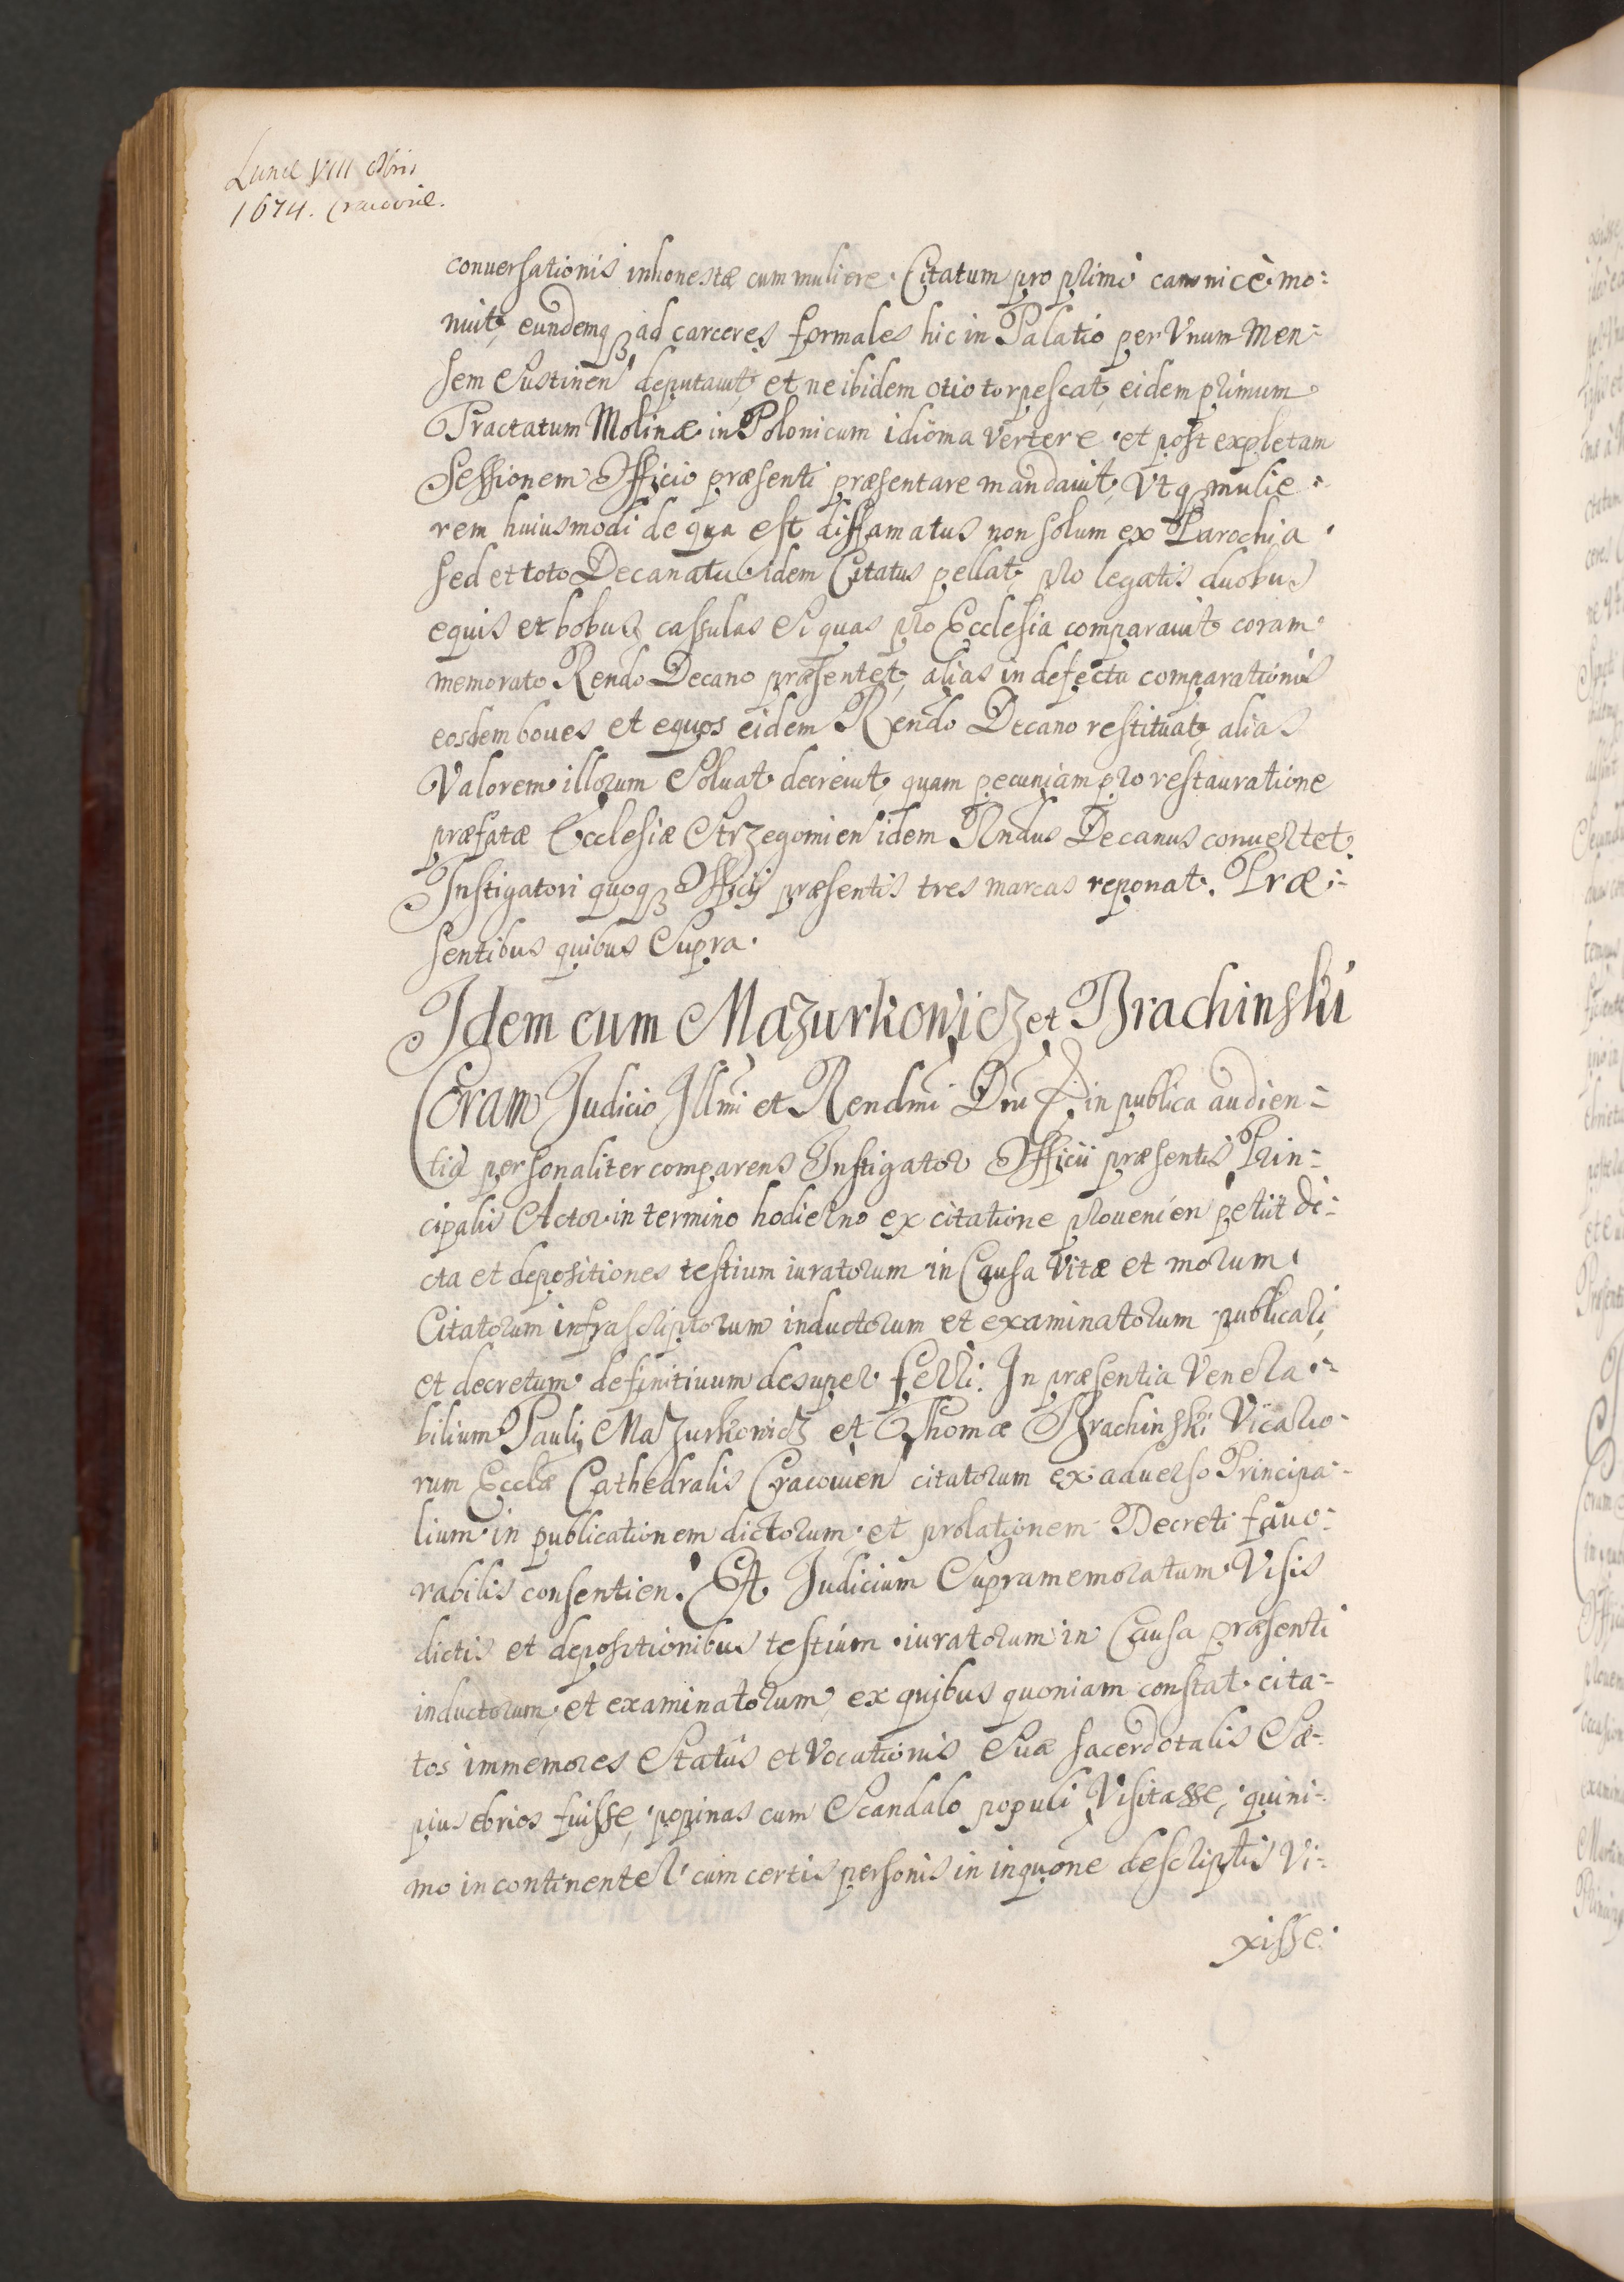 Lunæ VIII 8bris
1674. Cracoviæ.
conuersationis inhonestæ cum muliere. Citatum pro primò canonicè mo:
nuit, eundemqꝫ ad carceres formales hic in Palatio per Vnum Men:
sem Sustinen' deputauit, et ne ibidem otio torpescat, eidem primum
Tractatum Molinæ in Polonicum idioma vertere et post expletam
Sessionem Officio præsenti præsentare mandauit, Vtqꝫ mulie:
rem huiusmodi de qua est diffamatus non solum ex Parochia
sed et toto Decanatu idem Citatus pellat, pro legatis duobus
equis et bobus cassulas Si quas pro Ecclesia comparauit coram
memorato Rendo Decano præsentet, alias in defectu comparationis
eosdem boues et equos eidem Rendo Decano restituat, alias
Valorem illorum Soluat decreuit, quam pecuniam pro restauratione
præfatæ Ecclesiæ Strzegomien' idem Rndus Decanus conuertet.
Instigatori quoqꝫ Officij præsentis tres marcas reponat. Præ:
sentibus quibus Supra.
Idem cum Mazurkowicz et Brachinski
Coram Judicio Illmi et Rendmi Dni E. in publica audien:
tia personaliter comparens Instigator Officii præsentis Prin:
cipalis Actor in termino hodierno ex citatione prouenien' petiit di:
cta et depositiones testium iuratorum in Causa Vitæ et morum
Citatorum infrascriptorum inductorum et examinatorum publicari,
et decretum definitiuum desuper ferri. In præsentia Venera:
bilium Pauli Mazurkowicz et Thomæ Brachinski Vicario:
rum Ecclæ Cathedralis Cracouien' citatorum ex aduerso Principa:
lium in publicationem dictorum et prolationem Decreti fauo:
rabilis consentien'. Et Judicium Supramemoratum Visis
dictis et depositionibus testium iuratorum in Causa præsenti
inductorum et examinatorum, ex quibus quoniam constat cita:
tos immemores Status et Vocationis Suæ sacerdotalis Sæ:
pius ebrios fuisse, popinas cum Scandalo populi Visitasse, quini:
mo incontinenter cum certis personis in inquone descriptis Vi:
xisse.